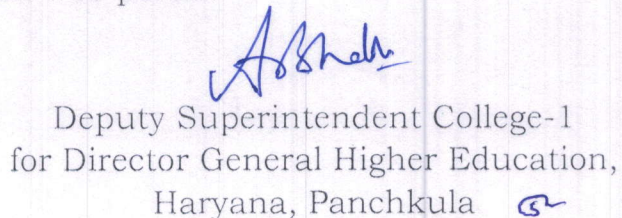 Deputy Superintendent College-1
for Director General Higher Education,
Haryana, Panchkula